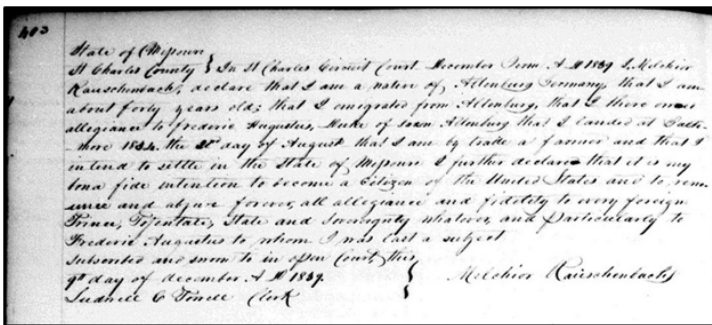 403
State of Missouri
St Charles County } In St Charles Circuit Court December Term A D 1839 I Melchior
Rauschenbach, declare that I am a native of Altenburg Germany, that I am
about forty years old; that I emigrated from Altenburg, that I there owes
allegiance to Frederic Augustus, Duke of Saxn Altenburg that I landed at Balti-
more 1834. the day of August that I am by trade a farmer and that I
intend to settle in the State of Missouri I further declare that it is my
bona fide intention to become a Citizen of the United States and to renn-
ounce and abjure forever, all allegiance and fidelity to every foreign
Prince, Potentate, State and Sovereignty whatever, and particularly to
Frederic Augustus to whom I was last a subject
Subscribed and sworn to in open Court, this
9th day of december A D 1839. } Melchior Rauschenbach
C Powell Clerk